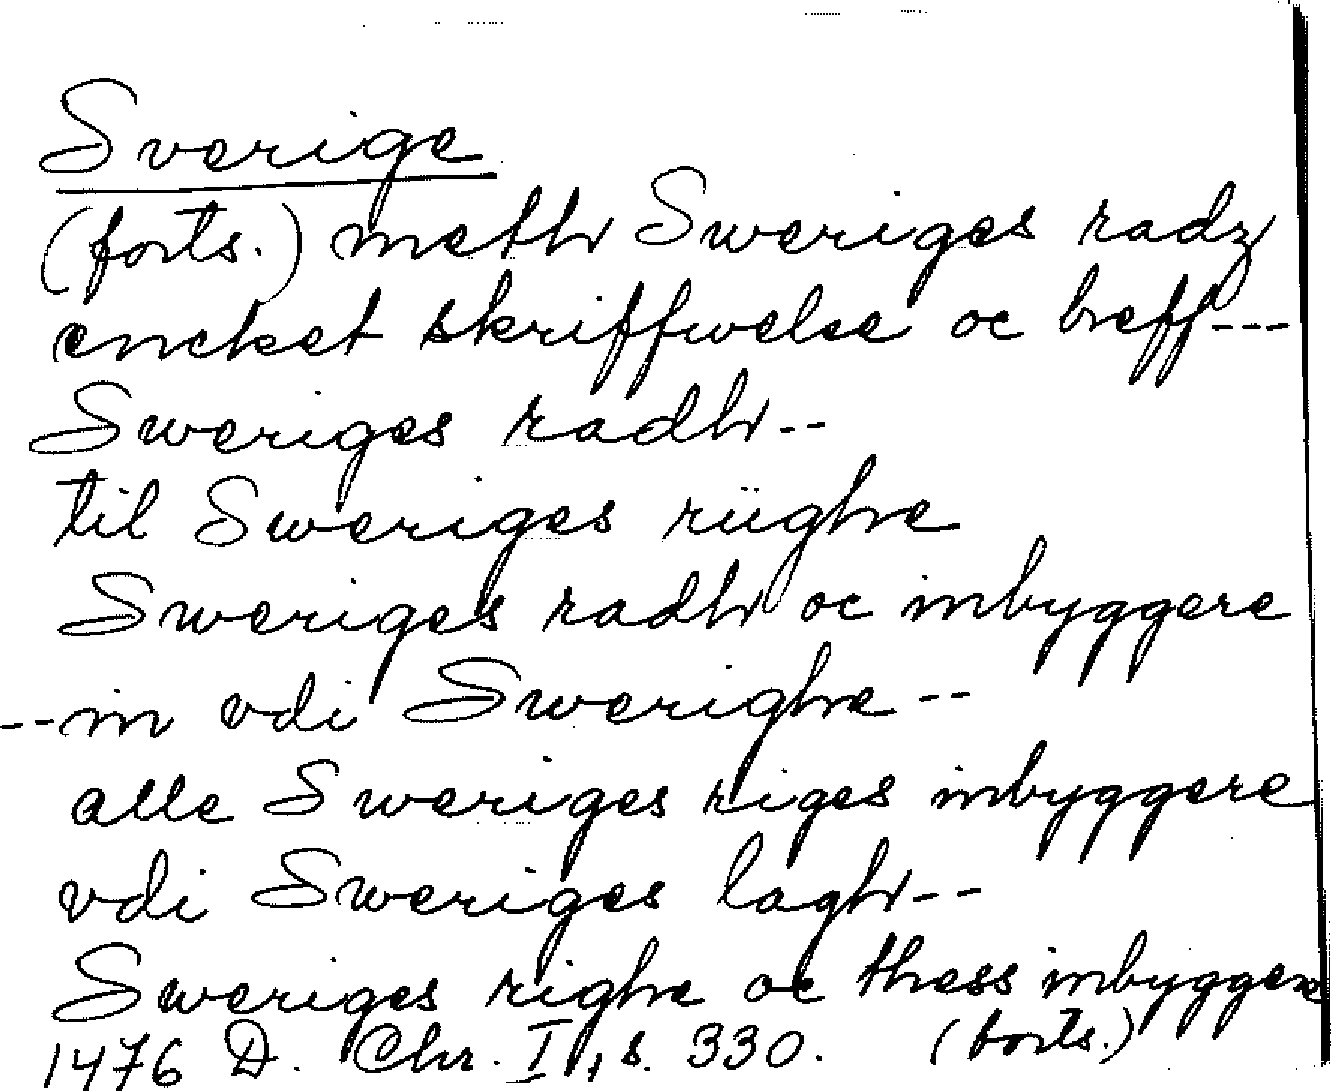 Sverige
(forts.) meth Sweriges radz
encket skriffwelse oc breff---
Sweriges radh--
til Sweriges riighe
Sweriges radh oc inbyggere
--in vdi Swerighe--
alle Sweriges riges inbyggere
vdi Sweriges lagh--
Sweriges righe oc thess inbyggere
1476 D. Chr. I, s. 330. (forts.)